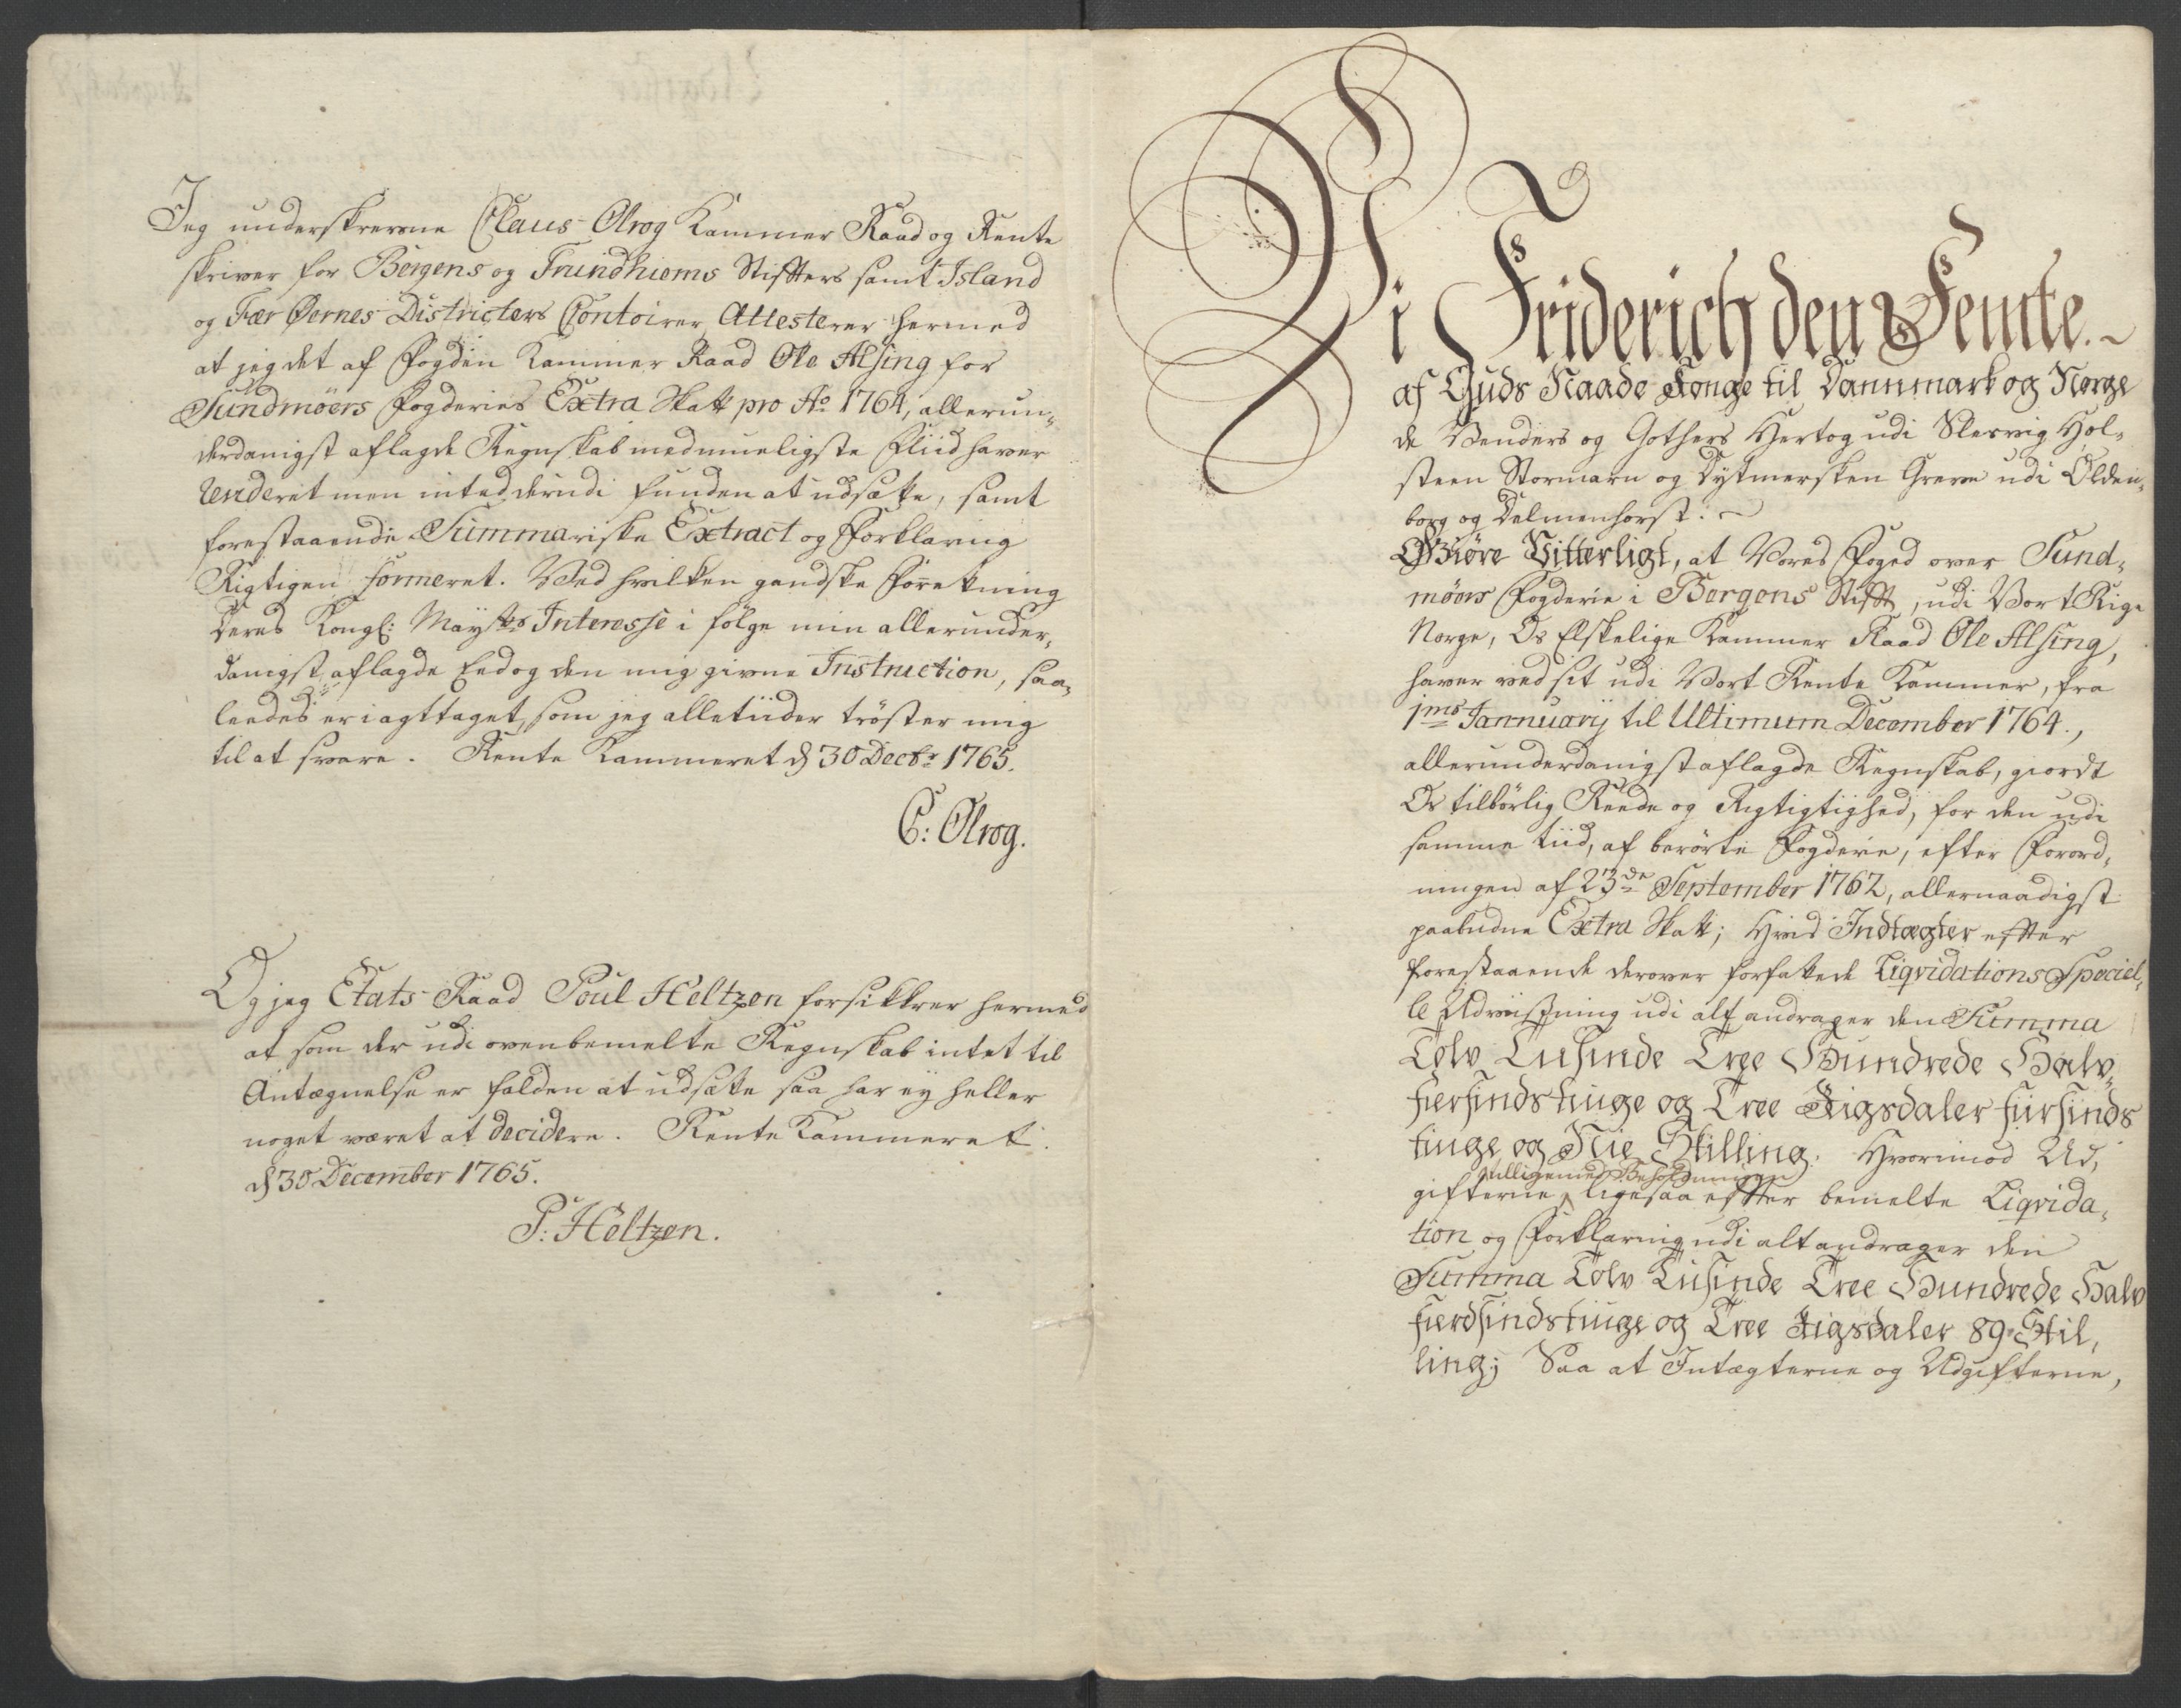 Jeg underskrevne Claus Olrog Kammer Raad og Rente
skriver for Bergens og Trundhiems Stiffters samt Island
og Fær Øernes Districters Contoirer Attesterer hermed
at jeg det af Fogden Kammer Raad Ole Alsing for
Sundmöers Fogderies Extra Skatt pro Ao 1764, allerun-
derdanigst aflagde Regnskab med mueligste Fliid haver
Revideret men inted derudi funden at udsætte, samt
forestaaende Summariske Extract og Forklaring
Rigtigen formeret. Ved hvilken gandske Foretning
Deres Kongl: Mayts Interesse i følge min allerunder-
danigst aflagde Eed og den mig givne Instruction, saa-
leedes er iagttaget, som jeg alletiider tröster mig
til at svare. Rente Kammeret d 30 Decbr 1765.
C: Olrog.
Og jeg Etats-Raad Poul Heltzen forsikkrer hermed
at som der udi ovenbemelte Regnskab intet til
Antægnelse er falden at udsætte saa har ey heller
noget været at decidere. Rente Kammeret.
d 30 December 1765.
P: Heltzen.
Vi Friderich den Femte.
af Guds Naade Konge til Dannmark og Norge
de Venders og Gothers Hertog udi Slesvig Hol-
steen Stormarn og Dytmersken Greve udi Olden-
borg og Delmenhorst.
Giöre Vitterligt, at Vores Foged over Sund-
möers Fogderie i Bergens Stifft, udi Vort Rige
Norge, Os Elskelige Kammer Raad Ole Alsing,
haver ved sit udi Vort Rente Kammer, fra
1ms Jannuarij til Ultimum December 1764.,
allerunderdanigst aflagde Regnskab, giordt
Os tilbörlig Reede og Rigtigtighed, for den udi
samme tiid, af berörte Fogderie, efter Forord-
ningen af 23de September 1762, allernaadigst
paabudne Extra Skatt; Hvis Indtægter effter
forestaaende derover forfattede Liqvidations Speciel-
le Udviisning udi alt andrager den Summa
Tolv Tusinde Tree Hundrede Halv-
fiersindstiuge og Tree Rigsdaler fiirsinds
tiuge og Nie Skilling. Hvorimod Ud-
tilligemed Beholdningen
gifterne, ligesaa effter bemelte Liqvida-
tion og Forklaring udi alt andrager den
Summa Tolv Tusinde Tree Hundrede Halv
fierdsindstiuge og Tree Rigsdaler 89 Skil-
ling; Saa at Intægterne og Udgifterne,